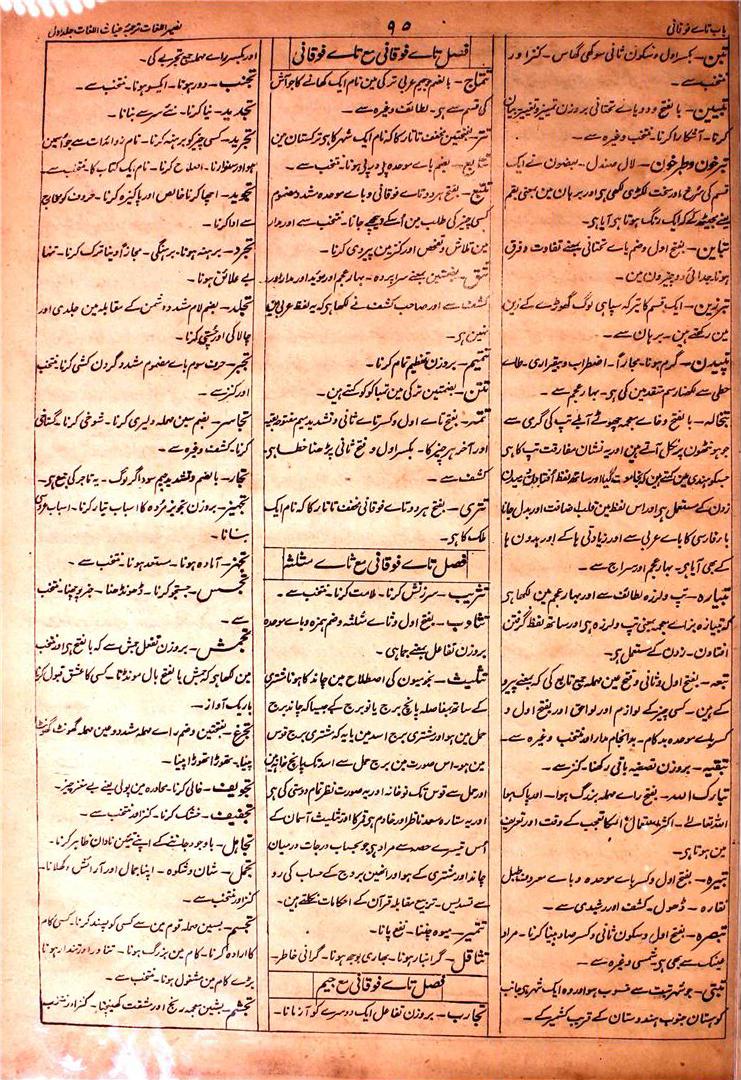 باب تاے فوقانی
۹۵
نصیر اللغات ترجمہ غیاث اللغات جلد اول
تبن۔ بکسر اول وسکون ثانی سوکھی گھاس۔ کنز اور
منتخب سے۔
تبیین۔ بالفتح و دو یاے تحتانی بروزن تمییز وتغییر بیان
کرنا۔ آشکارا کرنا۔ منتخب وغیرہ سے۔
تبرخون وطبرخون۔ لال صندل۔ بعضون نے ایک
قسم کی سرخ اور سخت لکڑی لکھی ہی اور برہان مین بمعنی بقم
تباین۔ بفتح اول وضم یاے تحتانی بمعنے تفاوت وفرق
ہونا۔ جدائی دو چیزون مین۔
تبرزین۔ ایک قسم کا تبر کہ سپاہی لوگ گھوڑے کے زین
مین رکھتے ہین۔ برہان سے۔
تپیدن۔ گرم ہونا۔ مجازاً۔ اضطراب و بیقراری۔ طاے
حطی سے لکھنا رسم متقدمین کی ہی۔ بہار عجم سے۔
تبخالہ۔ بالفتح و خاے معجمہ چھوٹے آبلے تپ کی گرمی سے
جو ہونٹھون پر نکل آتے ہین اور یہ نشان مفارقت تپ کا ہی
زدن کے مستعمل ہی اور اس لفظ مین قلب اضافت اور بدل جانا
باے فارسی کا باے عربی سے اور زیادتی ہا کے اور بدون ہا
کے بھی آیا ہی۔ بہار عجم اور سراج سے۔
تبیارہ۔ تپ ولرزہ لطائف سے اور بہار عجم مین لکھا ہی
کہ تبیازہ بزاے معجمہ بمعنی تپ ولرزہ ہی اور ساتھ لفظ گرفتن
افتادن۔ زدن کے مستعمل ہی۔
تبعہ۔ بفتح اول وثانی وفتح عین مہملہ جمع تابع کی کہ بمعنے پیرو
کے ہین۔ کسی چیز کے لوازم اور لواحق اور بفتح اول و
کسر باے موحدہ بدکام۔ بدانجام مدار اور منتخب وغیرہ سے۔
تبقیہ۔ بروزن تصفیہ باقی رکھنا۔ کنز سے۔
تبارک اللہ۔ بفتح راے مہملہ بزرگ ہوا۔ اور پاک ہوا
اللہ تعالے۔ اکثر استعمال اسکا تعجب کے وقت اور تعریف
مین ہوتا ہی۔
تبیرہ۔ بفتح اول وکسر باے موحدہ و یاے معروف طبل
نقارہ۔ ڈھول۔ کشف اور رشیدی سے۔
تبصرہ۔ بفتح اول وسکون ثانی وکسر صاد بینا کرنا۔ مراد
عینک سے بھی ہی۔ شمسی وغیرہ سے۔
تبتی۔ جو شہر تبت سے منسوب ہو اور وہ ایک شہر ہی جانب
کوہستان جنوب ہندوستان کے قریب کشمیر کے۔
فصل تاے فوقانی مع تاے فوقانی
تتماج۔ بالضم وجیم عربی ترکی مین نام ایک کھانے کا جو آش
کی قسم سے ہی۔ لطائف وغیرہ سے۔
تتر۔ بفتحتین مخفف تاتار کا کہ نام ایک شہر کا ہی ترکستان مین
تتابع۔ بضم باے موحدہ پے در پے ہونا۔ منتخب سے۔
تتبع۔ بفتح ہر دو تاے فوقانی و باے موحدہ مشدد مضموم
کسی چیز کی طلب مین اُسکے پیچھے جانا۔ منتخب سے اور مدار
مین تلاش و تفحص اور کنز مین پیروی کرنا۔
تتق۔ بضمتین بمعنے سراپردہ۔ بہار عجم اور مؤید اور مدار اور
کشف سے اور صاحب کشف نے لکھا ہی کہ یہ لفظ عربی بھی
نہین ہی۔
تتمیم۔ بروزن تعظیم تمام کرنا۔
تتن۔ بضمتین ترکی مین تمباکو کو کہتے ہین۔
تتمہ۔ بفتح تاے اول وکسر تاے ثانی وتشدید میم مفتوحہ بقیہ
اور آخر ہر چیز کا۔ بکسر اول و فتح ثانی پڑھنا خطا ہی
کشف سے۔
تتری۔ بفتح ہر دو تاے فوقانی مخفف تاتار کا کہ نام ایک
ملک کا ہی۔
فصل تاے فوقانی مع ثاے مثلثہ
تثریب۔ سرزنش کرنا۔ ملامت کرنا۔ منتخب سے۔
تثاؤب۔ بفتح اول وثاے مثلثہ وضم ہمزہ وباے موحدہ
بروزن تفاعل بمعنے جماہی۔
تثلیث۔ نجومیون کی اصطلاح مین چاند کا ہونا مشتری
کے ساتھ بفاصلہ پانچ برج یا نو برج کے جیسا کہ چاند برج
حمل مین ہو اور مشتری برج اسد مین یا یہ کہ مشتری برج قوس
مین ہو۔ اس صورت مین برج حمل سے اسد تک پانچ خانہ ہین
اور حمل سے قوس تک نو خانہ اور یہ صورت نظر تمام دوستی کی ہی
اُس تیسرے حصہ سے مراد ہی جو بحساب درجات درمیان
چاند اور مشتری کے ہو اور انھین بروج کے حساب کی رو
سے تسدیس۔ تربیع مقابلہ قرآن کے احکامات نکلتے ہین۔
تثمیر۔ میوہ چننا۔ نفع پانا۔
تثاقل۔ گرانبار ہونا۔ بھاری بوجھ ہونا۔ گرانی خاطر۔
فصل تاے فوقانی مع جیم
تجارب۔ بروزن تفاعل ایک دوسرے کو آزمانا۔
اور بکسر راے مہملہ جمع تجربے کی۔
تجنب۔ دور ہونا۔ ایکسو ہونا۔ منتخب سے۔
تجدید۔ نیا کرنا۔ نئے سرے بنانا۔
تجرید۔ کسی چیز کو برہنہ کرنا۔ تمام زوائدات سے جو اُسمین
ہو اور سنوارنا۔ اصلاح کرنا۔ نام ایک کتاب کا۔ منتخب سے۔
تجوید۔ اچھا کرنا خالص اور پاکیزہ کرنا۔ حروف کو مخارج
سے ادا کرنا۔
تجرد۔ برہنہ ہونا۔ برہنگی۔ مجازاً دنیا ترک کرنا۔ تنہا
بے علائق ہونا۔
تجلد۔ بضم لام مشدد دشمن کے مقابلہ مین جلدی اور
چالاکی اور چستی کرنا۔
تجبر۔ حرف سوم باے مضموم مشدد گردن کشی کرنا۔ منتخب
اور کنز سے۔
تجاسر۔ بضم سین مہملہ دلیری کرنا۔ شوخی کرنا۔ گستاخی
کرنا۔ کشف وغیرہ سے۔
تجار۔ بالضم وتشدید جیم سوداگر لوگ۔ یہ تاجر کی جمع ہی۔
تجہیز۔ بروزن تجویز مردہ کا اسباب تیار کرنا۔ اسباب عروسی
بنانا۔
تجہز۔ آمادہ ہونا۔ مستعد ہونا۔ منتخب سے۔
تجسس۔ جستجو کرنا۔ ڈھونڈھنا۔ خبر پوچھنا۔ منتخب
سے۔
تجمش۔ بروزن تفعل جمش سے کہ بالفتح ہی اور منتخب
مین لکھا ہی کہ جمش بالفتح بال مونڈنا۔ کسی کا عشق قبول کرنا
باریک آواز۔
تجرع۔ بفتحتین وضم راے مہملہ مشدد وعین مہملہ گھونٹ گھونٹ
پینا۔ تھوڑا تھوڑا پینا۔
تجویف۔ خالی کرنا۔ محاورہ مین پولی یعنے بے مغز چیز۔
تجفیف۔ خشک کرنا۔ کنز اور منتخب سے۔
تجاہل۔ باوجود جاننے کے اپنے تئین نادان ظاہر کرنا۔
تجمل۔ شان و شکوہ۔ اپنا جمال اور آرائش دکھلانا۔
کنز اور منتخب سے۔
تجسم۔ بسین مہملہ قوم مین سے کسی کو پسند کرنا۔ کسی کام
کا ارادہ کرنا۔ کام مین بزرگ ہونا۔ تناور اور تندار ہونا
بڑے کام مین مشغول ہونا۔ منتخب سے۔
تجشم۔ بشین معجمہ رنج اور مشقت کھینچنا۔ کنز اور منتخب